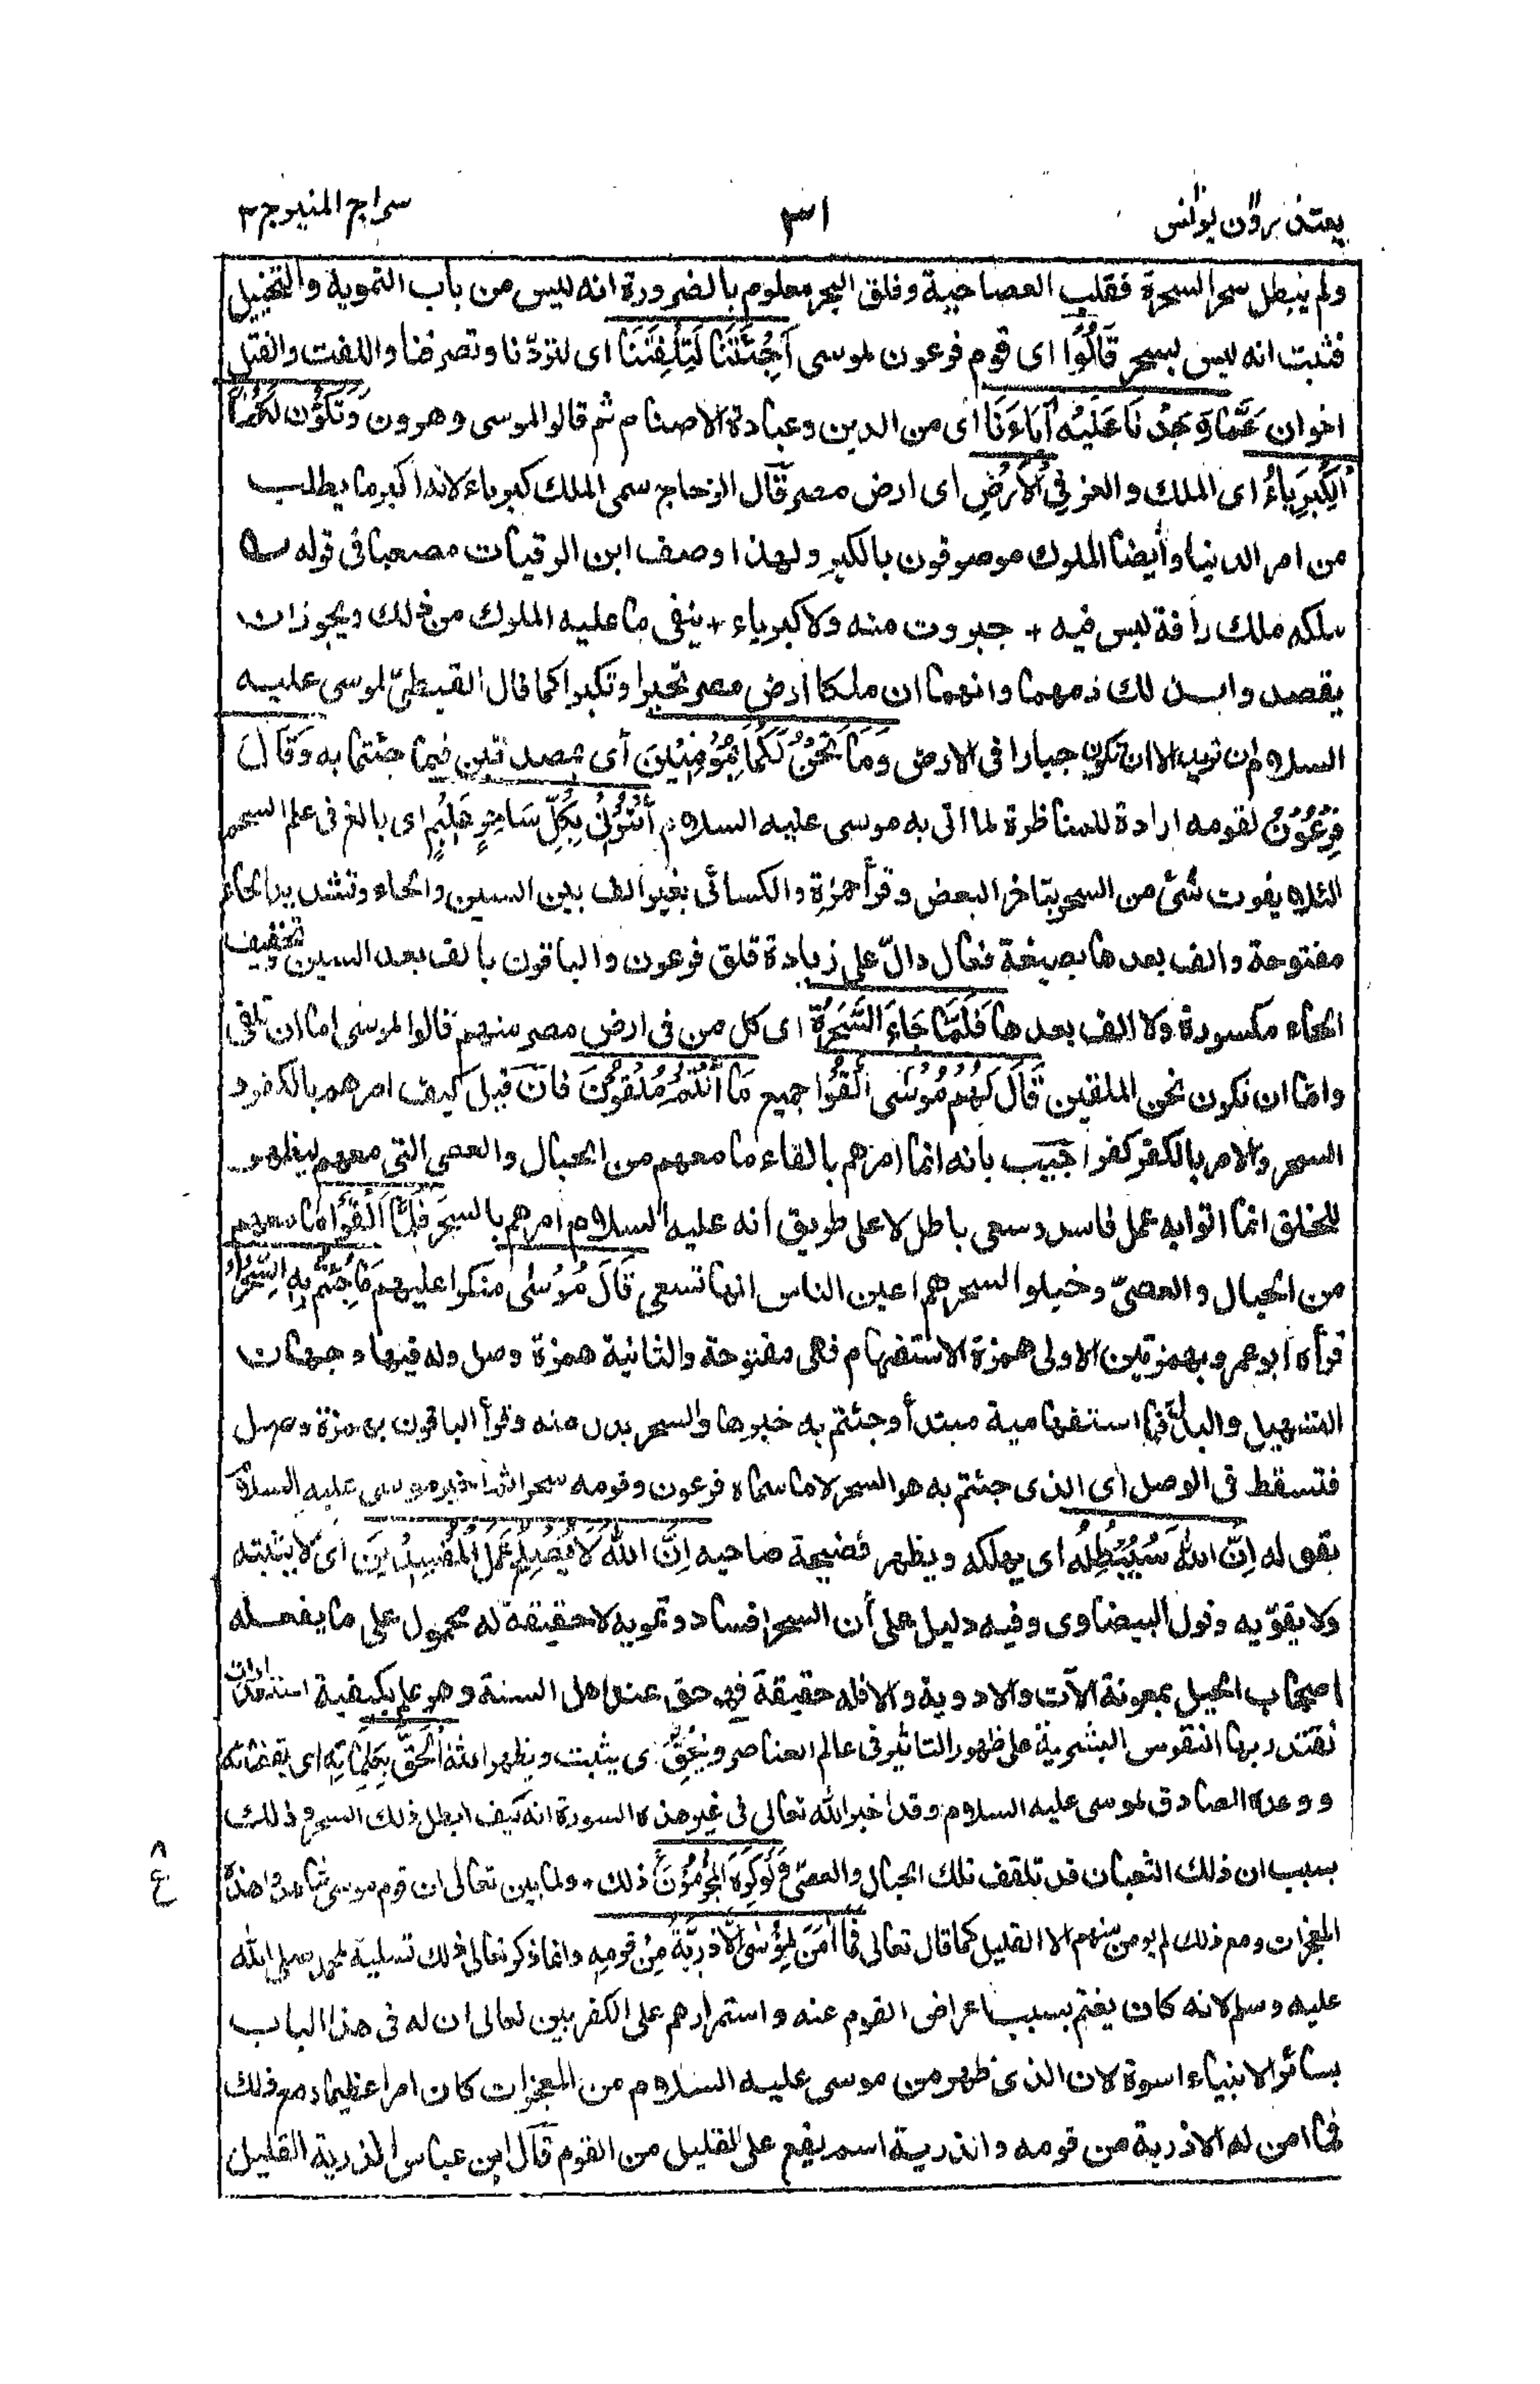 يعتذرون يونس
٣١
سراج المنير ج ٣
ولم يبطل سحر السحرة فقلب العصا حية وفلق البحر معلوم بالضرورة انه ليس من باب التمويه والتخييل
فثبت انه ليس بسحر قَالُوا اى قوم فرعون لموسى أَجِئْتَنَا لِتَلْفِتَنَا اى لتردّنا وتصرفنا واللفت والفتل
اخوان عَمَّا وَجَدْنَا عَلَيْهِ آبَاءَنَا اى من الدين وعبادة الاصنام ثم قالوا لموسى وهرون وَتَكُوْنَ لَكُمَا
الْكِبْرِيَاءُ اى الملك والعز فِي الْأَرْضِ اى ارض مصر قال الزجاج سمى الملك كبرياء لانه اكبر ما يطلب
من امر الدنيا وأيضا الملوك موصوفون بالكبر ولهذا وصف ابن الرقيات مصعبا فى قوله
ملكه ملك رأفة ليس فيه + جبروت منه ولا كبرياء + ينفى ما عليه الملوك من ذلك ويجوز ان
يقصدوا بذلك ذمهما وانهما ان ملكا أرض مصر تجبرا وتكبرا كما قال القبطىّ لموسى عليه
السلام ان تريد الا ان تكون جبارا فى الارض وَمَا نَحْنُ لَكُمَا بِمُؤْمِنِيْنَ أى مصدقين فيما جئتما به وَقَالَ
فِرْعَوْنُ لقومه ارادة للمناظرة لما اتى به موسى عليه السلام أَئْتُوْنِى بِكُلِّ سَاحِرٍ عَلِيْمٍ اى بالغ فى علم السحر
لئلا يفوت شئ من السحر بتاخر البعض وقرأ حمزة والكسائى بغير الف بين السين والحاء وتشديد الحاء
مفتوحة والف بعدها بصيغة فعال دالّ على زيادة قلق فرعون والباقون بالف بعد السين وتخفيف
الحاء مكسورة ولا الف بعدها فَلَمَّا جَاءَ السَّحَرَةُ اى كل من فى ارض مصر منهم قالوا لموسى اما ان تلقى
واما ان نكون نحن الملقين قَالَ لَهُمْ مُوْسَى أَلْقُوْا جميع مَا أَنْتُمْ مُلْقُوْنَ فان قيل كيف امرهم بالكفر و
السحر والامر بالكفر كفر اجيب بانه انما امرهم بالقاء ما معهم من الحبال والعصى التى معهم ليظهر
للخلق انما اتوا به عمل فاسد وسعى باطل لا على طريق انه عليه السلام امرهم بالسحر فَلَمَّا أَلْقَوْا ما معهم
من الحبال والعصىّ وخيلوا السحرهم اعين الناس انها تسعى قَالَ مُوْسٰى منكرا عليهم مَا جِئْتُمْ بِهِ السِّحْرُ
قرأه أبو عمرو بهمزتين الاولى همزة الاستفهام فهى مفتوحة والثانية همزة وصل وله فيها وجهان
التسهيل والبدل فما استفهامية مبتدأ وجئتم به خبرها والسحر بدل منه وقرأ الباقون بهمزة وصل
فتسقط فى الوصل اى الذى جئتم به هو السحر لا ما سماه فرعون وقومه سحرا ثم اخبر موسى عليه السلام
بقوله إِنَّ اللّٰهَ سَيُبْطِلُهُ اى يهلكه ويظهر فضيحة صاحبه إِنَّ اللّٰهَ لَا يُصْلِحُ عَمَلَ الْمُفْسِدِيْنَ اى لا يثبته
ولا يقوّيه وقول البيضاوى وفيه دليل على أن السحر افساد وتمويه لا حقيقة له محمول على ما يفعله
اصحاب الحيل بمعونة الآت والادوية والا فله حقيقة فهو حق عند اهل السنة وهو علم بكيفية استعدادات
تقتدر بها النفوس البشرية على ظهور التاثير فى عالم العناصر وَيُحِقُّ اى يثبت ويظهر اللّٰهُ الْحَقَّ بِكَلِمَاتِهِ اى بقضائه
ووعده الصادق لموسى عليه السلام وقد اخبر الله تعالى فى غير هذه السورة انه كيف ابطل ذلك السحر وذلك
بسبب ان ذلك الثعبان قد تلقف تلك الحبال والعصىّ وَلَوْ كَرِهَ الْمُجْرِمُوْنَ ذلك ولما بين تعالى ان قوم موسى شاهدوا هذه
المعجزات ومع ذلك لم يومن منهم الا القليل كما قال تعالى فَمَا أٰمَنَ لِمُوْسٰى إِلَّا ذُرِّيَّةٌ مِنْ قَوْمِهِ وانما ذكر تعالى ذلك تسلية لمحمد صلى الله
عليه وسلم لانه كان يغتم بسبب اعراض القوم عنه واستمرارهم على الكفر بين تعالى ان له فى هذا الباب
بسائر الانبياء اسوة لان الذى ظهر من موسى عليه السلام من المعجزات كان امرا عظيما ومع ذلك
فما امن له الا ذرية من قومه والذرية اسم يقع على القليل من القوم قال ابن عباس الذرية القليل
٨
ع